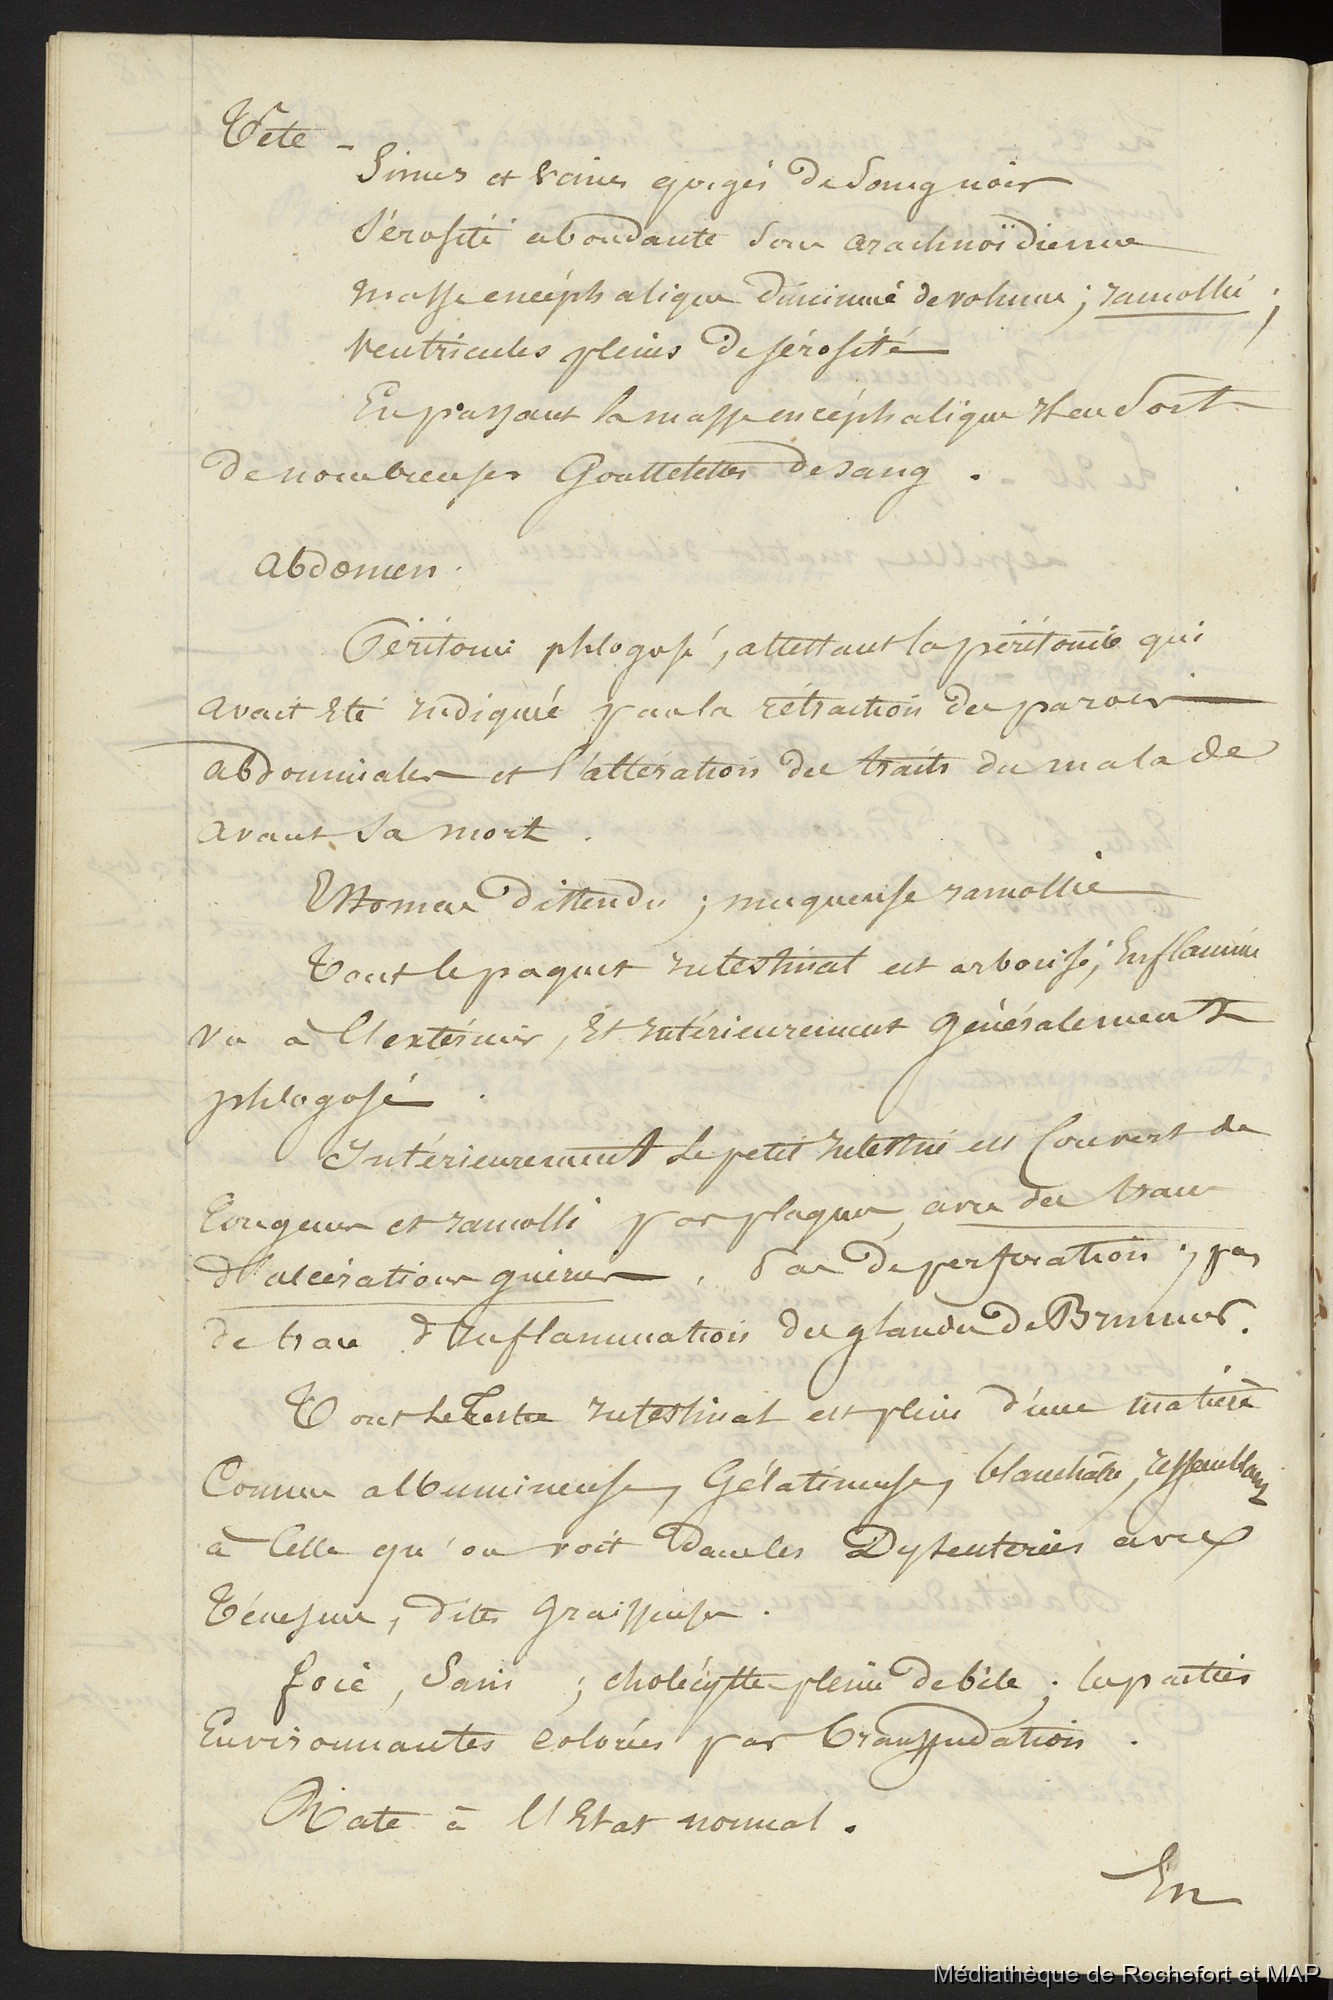 Tete -
Sinus et veines gorgés de Sang noir
Sérosité abondante Sous arachnoïdienne
Masse encéphalique diminuée de volume ; ramollie ;
Ventricules pleins de sérosité
En pressant la masse encéphalique il en Sort
de nombreuses Gouttelettes de sang .
Abdomen .
Péritoine phlogosé, attestant la péritonite qui
avait été indiqué par la rétraction des parois
abdominales et l'altération des traits du malade
avant sa mort .
Estomac distendu ; muqueuse ramollie
Tout le paquet intestinal est arborisé, enflammé
vu à l'extérieur, et intérieurement généralement
phlogosé .
Intérieurement le petit intestin est couvert de
rougeurs et ramolli par plaques, avec des traces
d'ulcérations guéries . Pas de perforation ; pas
de traces d'inflammation des glandes de Brunner.
Tout le reste intestinal est plein d'une matière
Comme albumineuse, Gélatineuse, blanchâtre, ressemblant
à Celle qu'on voit dans les Dysenteries avec
Ténesme, dites graisseuses .
foie, Sain ; cholécyste pleine de bile ; les parties
Environnantes colorées par transsudation .
Rate à l'Etat normal .
En
Médiathèque de Rochefort et MAP